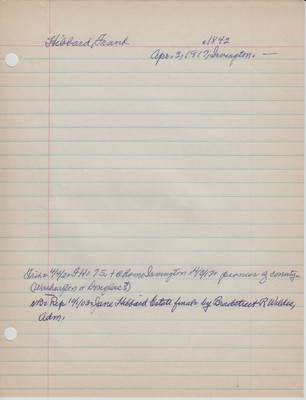 Hibbard, Frank c1842
Apr. 3, 1917, Irvington. —
Trib 4/4/20 FH 75, home Irvington 4/3/17 pioneer of county
(Washington or Douglas?)
WB Rep 1/4/03 Jane Hibbard Estate finale by Bradstreet R Walder,
Adm.